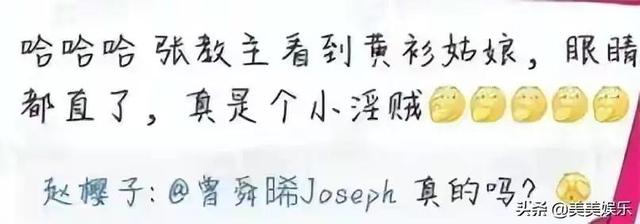 哈哈哈 张教主看到黄衫姑娘，眼睛
都直了，真是个小淫贼
赵樱子：@曾舜晞Joseph 真的吗？
头条@美美娱乐